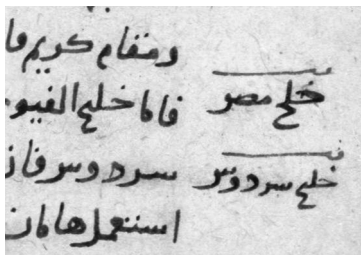 ومقام كريم فا
خلج مصر
فاما خلج الفيو
خلج سردوس
سردوس فان
استعمل هامان